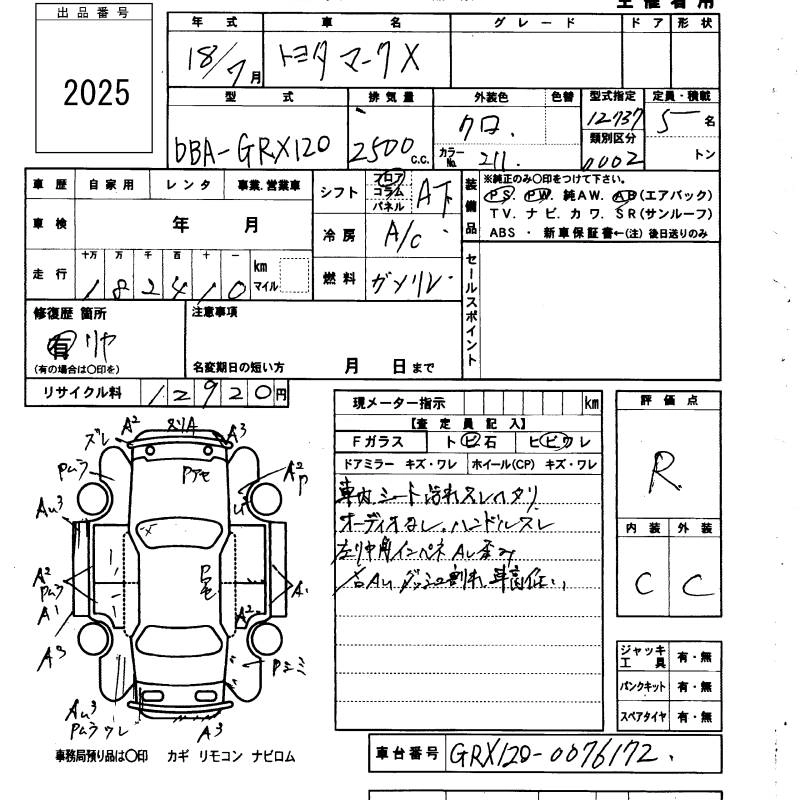 主催者用
出品番号
2025
年式 車名 グレード ドア 形状
18/7月 トヨタ マークX
型式 排気量 外装色 色替 型式指定 定員・積載
DBA-GRX120 2500 c.c. クロ. 12737 5名
カラーNo. 211 類別区分 0002 トン
車歴 自家用 レンタ 事業.営業車
シフト フロア コラム パネル AT
装備品 ※純正のみ〇印をつけて下さい。
PS. PW. 純AW. AB(エアバック)
TV. ナビ. カワ. SR(サンルーフ)
ABS ・ 新車保証書←(注) 後日送りのみ
車検 年 月
冷房 A/c
走行 十万 万 千 百 十 一
182410 km マイル
燃料 ガソリン
セールスポイント
修復歴 箇所
有 リヤ
(有の場合は〇印を)
注意事項
名変期日の短い方 月 日まで
リサイクル料 12920円
現メーター指示 km
【査定員記入】
Fガラス トビ石 ヒビワレ
ドアミラー キズ・ワレ ホイール(CP) キズ・ワレ
車内シート汚れスレヘタリ
オーディオなし.ハンドルスレ
ダッシュ割れ 車高低い
評価点
R
内装 外装
C C
ジャッキ工具 有・無
パンクキット 有・無
スペアタイヤ 有・無
ズレ A2 A3
Pムラ Pアセ A2 P
Au3
A2
Pムラ
A1 A2 A1
A3
Au3
Pムラ ワレ A3
事務局預り品は〇印 カギ リモコン ナビロム
車台番号 GRX120-0076172.